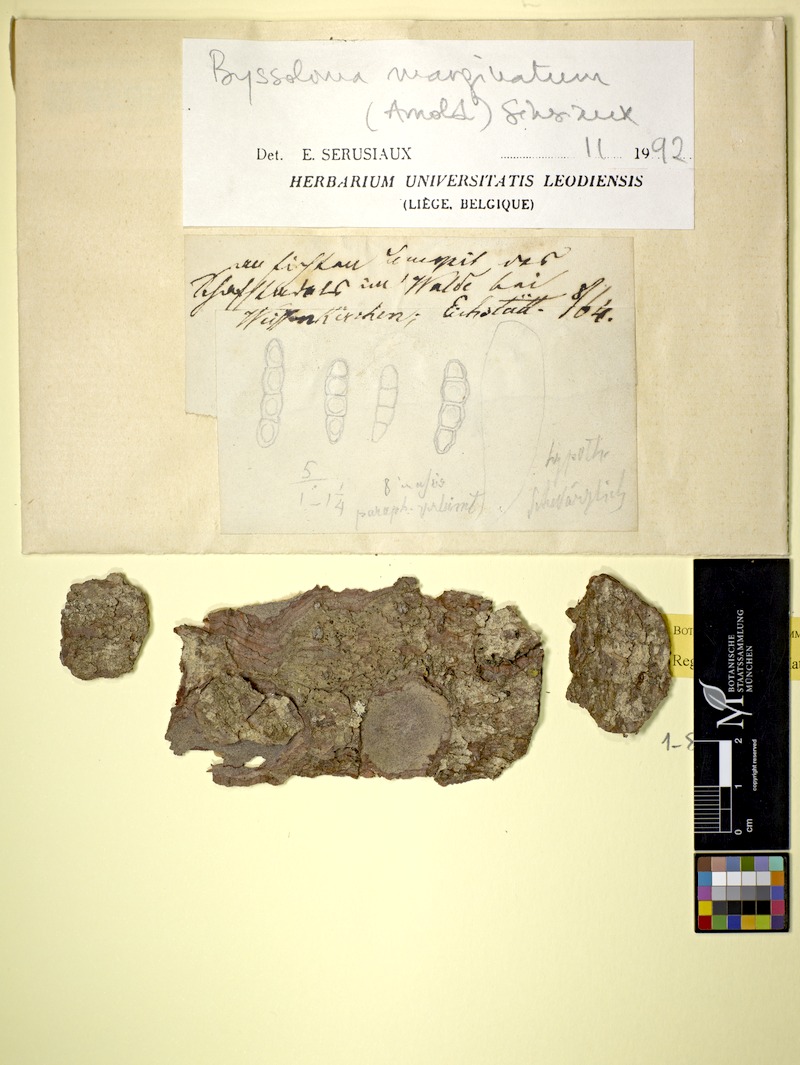 Byssoloma marginatum
(Arnold) Sérusiaux
Det. E. SERUSIAUX 11 1992
HERBARIUM UNIVERSITATIS LEODIENSIS
(LIÈGE, BELGIQUE)
an Fichten unweit des
im Walde bei
Eichstätt. 8/64.
5
1-1 1/4
8 in asco
paraph.
hypoth.
BOT
Reg
1-8
BOTANISCHE
STAATSSAMMLUNG
MÜNCHEN
M
copyright reserved
0 1 2
cm